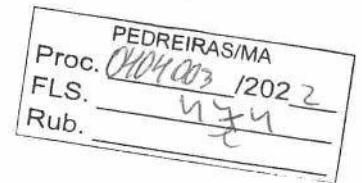 PEDREIRAS/MA
Proc. 0404003 /2022
FLS. 474
Rub.